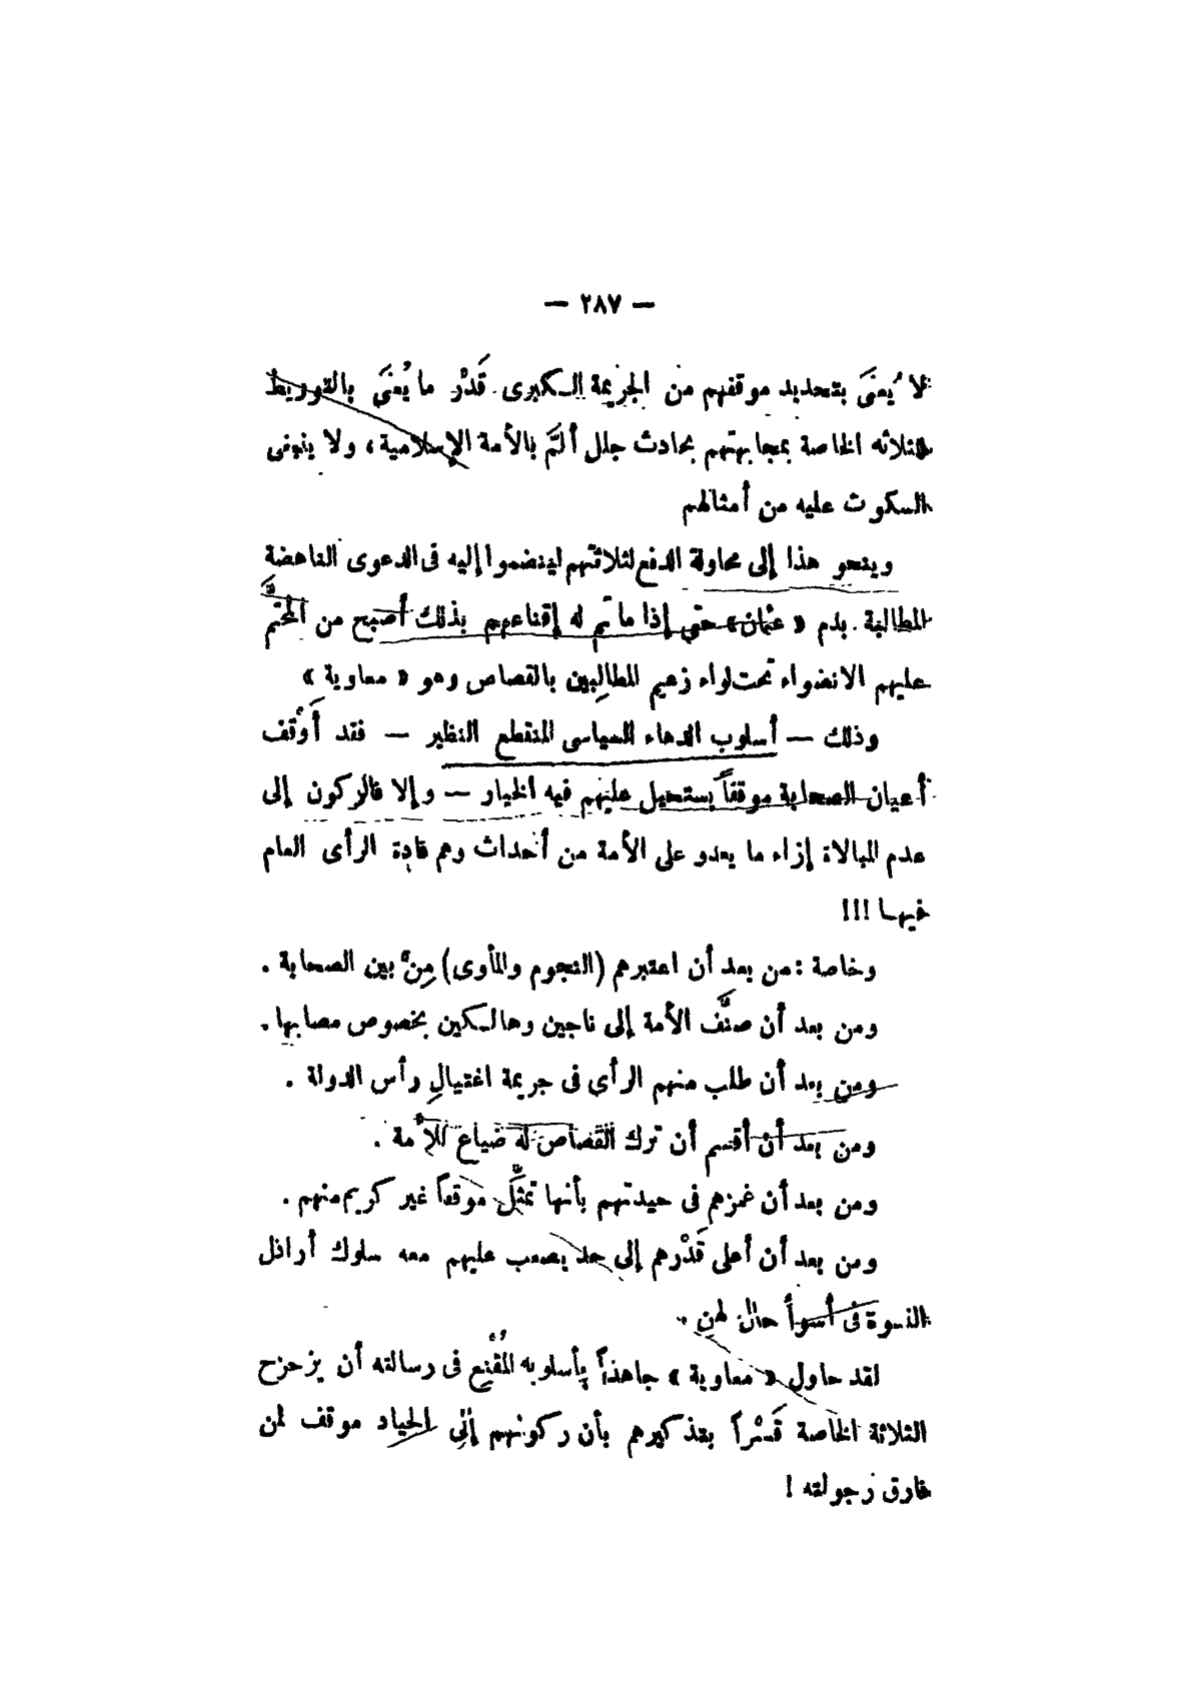 — ٢٨٧ —
لا يُعنَى بتحديد موقفهم من الجريمة الكبرى قَدْر ما يُعنَى بالتوريط
الثلاثه الخاصة بمجابهتهم بحادث جلل ألَمَّ بالأمة الإسلامية، ولا ينبغى
السكوت عليه من أمثالهم
وينحو هذا إلى محاولة الدفع لثلاثتهم لينضموا إليه فى الدعوى الناهضة
المطالبة بدم « عثمان » حتى إذا ما تم له إقناعهم بذلك أصبح من المحَتَّم
عليهم الانضواء تحت لواء زعيم المطالِبين بالقصاص وهو « معاوية »
وذلك — أسلوب الدهاء السياسى المنقطع النظير — فقد أَوْقَف
أعيان الصحابة موقفاً يستحيل عليهم فيه الخيار — وإلا فالركون إلى
عدم المبالاة إزاء ما يعدو على الأمة من أحداث وهم قادة الرأى العام
فيها !!!
وخاصة : من بعد أن اعتبرهم (النجوم والمأوى) مِنْ بين الصحابة .
ومن بعد أن صنَّفَ الأمة إلى ناجين وهالكين بخصوص مصابها .
ومن بعد أن طلب منهم الرأى فى جريمة اغتيالِ رأس الدولة .
ومن بعد أن أقسم أن ترك القصاص له ضياع للأمة .
ومن بعد أن غمزهم فى حيدتهم بأنها تمثِّل موقفاً غير كريم منهم .
ومن بعد أن أعلى قَدْرهم إلى حد يصعب عليهم معه سلوك أراذل
النسوة فى أسوأ حال لهن .
لقد حاول « معاوية » جاهداً بأسلوبه المُقْنِع فى رسالته أن يزحزح
الثلاثة الخاصة قَسْراً بتذكيرهم بأن ركونهم إلى الحياد موقف لمن
فارق رجولته !